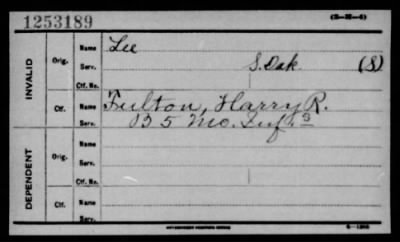 1253189
(3—M—4)
INVALID
Orig.
Name Lee
Serv. S. Dak. (S)
Ctf. No.
Ctf.
Name Fulton, Harry R.
Serv. B 5 Mo. Inf. S
DEPENDENT
Orig.
Name
Serv.
Ctf. No.
Ctf.
Name
Serv.